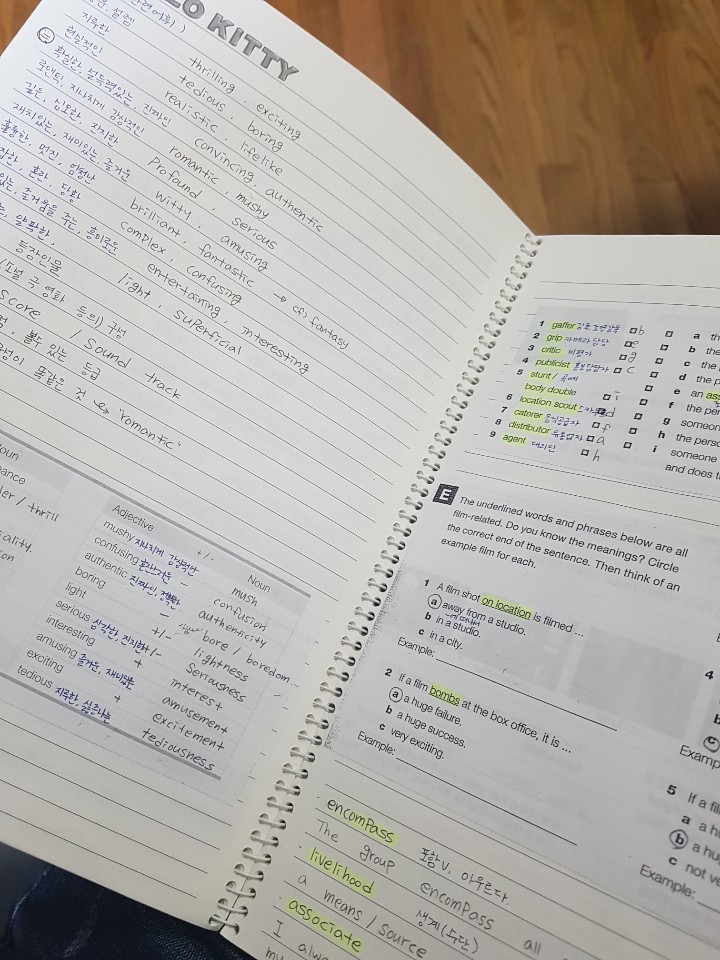 LO KITTY
지루한 thrilling , exciting
현실적인 tedious , boring
확실한, 설득력있는, 진짜인 realistic , lifelike
로맨틱, 지나치게 감상적인 convincing, authentic
깊은, 심오한, 진지한 romantic , mushy
재치있는, 재미있는, 즐거운 profound , serious
훌륭한, 멋진, 엄청난 witty , amusing
혼란, 당황 brilliant , fantastic → cf) fantasy
즐거움을 주는, 흥미로운 complex , confusing
entertaining interesting
light , superficial
등장인물
score / Sound track
볼수 있는 등급
똑같은 것 ↪ "romantic"
Adjective +/- Noun
mushy 지나치게 감상적인 mush
confusing 혼란스러운 confusion
authentic authenticity
boring - bore / boredom
light +/- lightness
serious 심각한, 진지한 +/- seriousness
interesting + interest
amusing 즐거운, 재미있는 amusement
exciting + excitement
tedious 지루한, 싫증나는 tediousness
1 gaffer b
2 grip 카메라 담당 e
3 critic 비평가 g
4 publicist 홍보담당자 c
5 stunt /
body double i
6 location scout d
7 caterer 음식공급자 f
8 distributor 유통업자 a
9 agent 대리인 h
a
b the
c the
d the p
e an ass
f the per
g someon
h the perso
i someone
and does t
E The underlined words and phrases below are all
film-related. Do you know the meanings? Circle
the correct end of the sentence. Then think of an
example film for each.
1 A film shot on location is filmed ...
a away from a studio.
b in a studio.
c in a city.
Example:
2 If a film bombs at the box office, it is ...
a a huge failure.
b a huge success.
c very exciting.
Example:
4
Examp
5 If a fil
a a h
b a hu
c not ve
Example:
encompass 포함V, 아우르다.
The group encompass all
livelihood 생계(수단)
a means / source
associate
I alwa